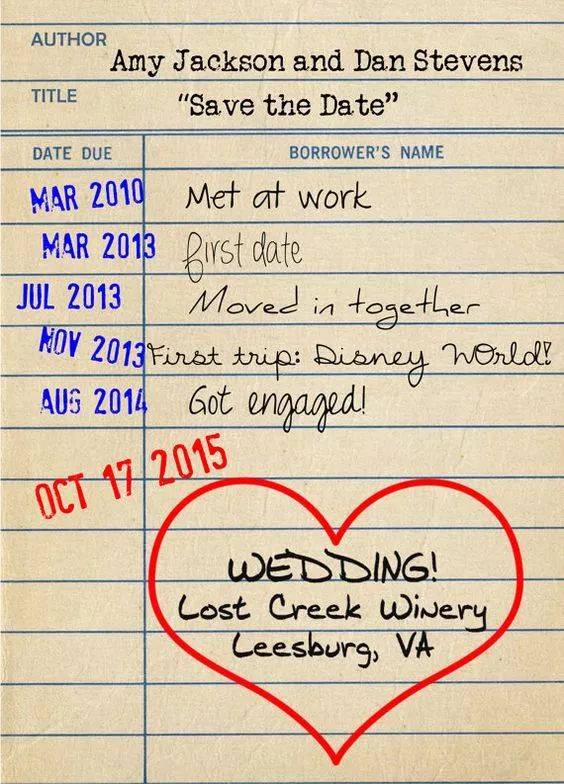 AUTHOR Amy Jackson and Dan Stevens
TITLE “Save the Date”
DATE DUE BORROWER'S NAME
MAR 2010 Met at work
MAR 2013 first date
JUL 2013 Moved in together
NOV 2013 First trip: Disney World!
AUG 2014 Got engaged!
OCT 17 2015
WEDDING!
Lost Creek Winery
Leesburg, VA